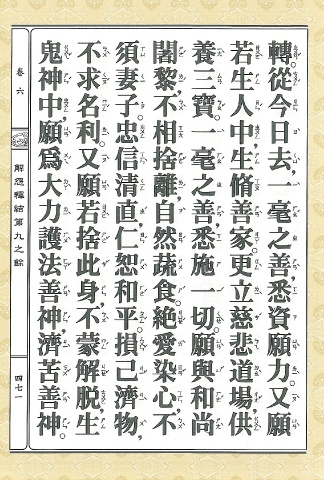 轉從今日去,一毫之善,悉資願力。又願
若生人中,生脩善家。更立慈悲道場,供
養三寶。一毫之善,悉施一切。願與和尚
闍黎,不相捨離,自然蔬食,絕愛染心,不
須妻子。忠信清直,仁恕和平。損己濟物,
不求名利。又願若捨此身,不蒙解脫,生
鬼神中,願爲大力護法善神,濟苦善神。
卷六
解怨釋結第九之餘
四七一